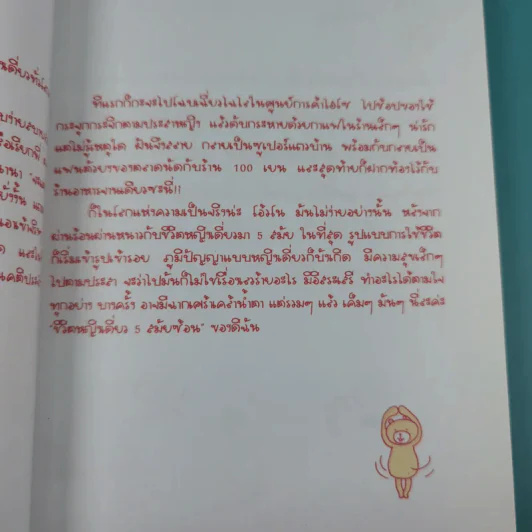 ทีแรกก็กะจะไปโฉบเฉี่ยวไฉไลในศูนย์การค้าไอโซ ไปช้อปของใช้
กระจุกกระจิกตามประสาหญิง แล้วดับกระหายด้วยกาแฟในร้านเล็กๆ น่ารัก
แต่ไม่รู้เหตุใด ฝันจึงสลาย กลายเป็นซูเปอร์แถวบ้าน พร้อมกับกลายเป็น
แฟนตัวยงของตลาดนัดกับร้าน 100 เยน และสุดท้ายก็ฝากท้องไว้กับ
ร้านอาหารจานเดียวซะนี่!!
ก็ในโลกแห่งความเป็นจริงน่ะ โอ้วโน มันไม่ง่ายอย่างนั้น หลังจาก
ผ่านร้อนผ่านหนาวกับชีวิตหญิงเดี่ยวมา 5 สมัย ในที่สุด รูปแบบการใช้ชีวิต
ก็เริ่มเข้ารูปเข้ารอย ภูมิปัญญาแบบหญิงเดี่ยวก็บังเกิด มีความสุขเล็กๆ
ไปตามประสา จะว่าไปมันก็ไม่ใช่เรื่องเลวร้ายอะไร มีอิสระเสรี ทำอะไรได้ตามใจ
ทุกอย่าง บางครั้ง อาจมีฉากเศร้าเคล้าน้ำตา แต่รวมๆ แล้ว เค็มๆ มันๆ นี่ละค่ะ
"ชีวิตหญิงเดี่ยว 5 สมัยซ้อน" ของดิฉัน